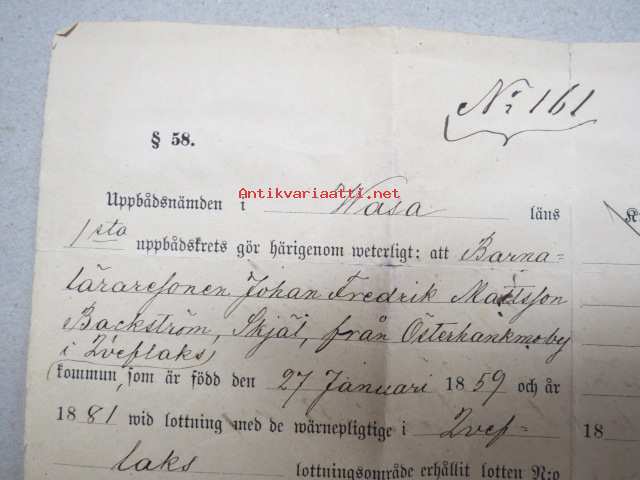 № 161
§ 58.
Antikvariaatti.net
Uppbådsnämden i Wasa läns
1sta uppbådskrets gör härigenom weterligt: att Barna=
läraresonen Johan Fredrik Mattsson
Backström, Skjäl, från Österhankmoby
i Qveflaks
kommun, som är född den 27 Januari 1859 och år
1881 wid lottning med de wärnepligtige i Qvef=
laks lottningsområde erhållit lotten N:o
18